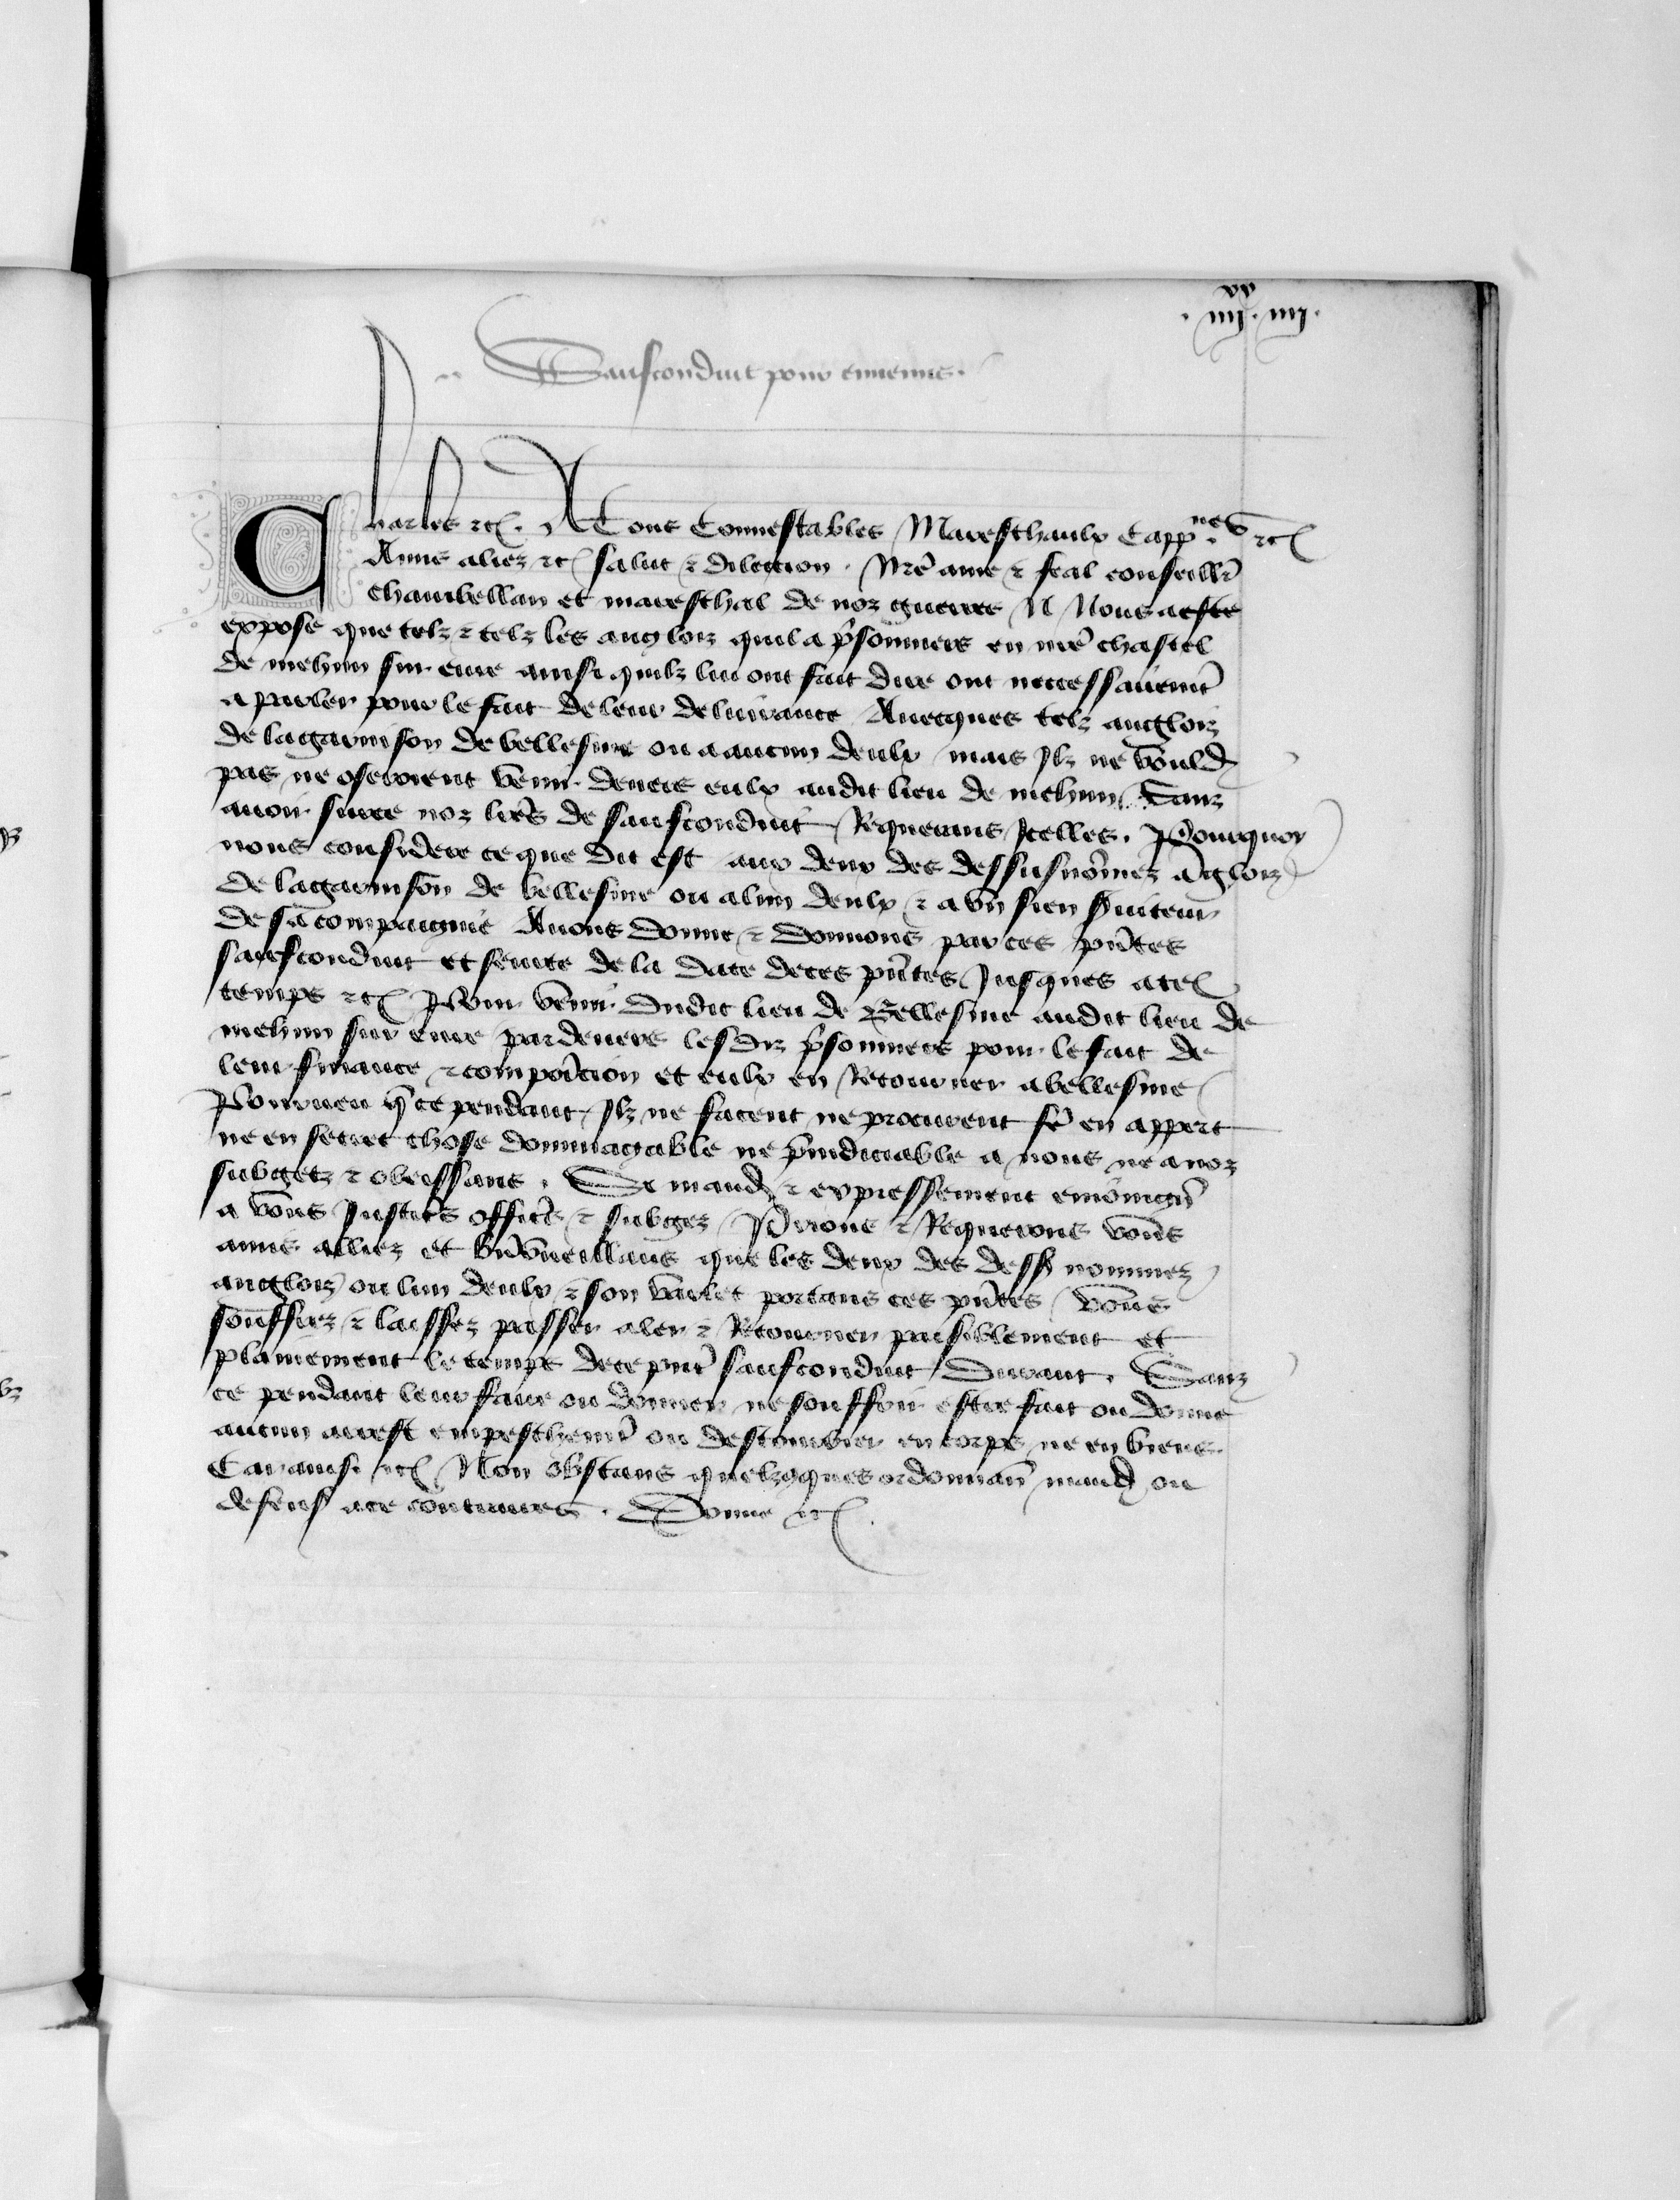 xx
. iiij . iiij .
Saufconduit pour ennemis .
Charles etc . A Tous Connestables Mareschaulx Capp nes etc
Amis aliez etc salut & dilection . Nre ame & feal conseillr
chambellan et mareschal de noz guerres N Nous a este
expose que telz & telz les anglois quil a psonniers en nre chastel
de mehun sur eure ainsi quilz lui ont fait dire ont necessairemt
a parler pour le fait de leur deliurance Auecques telz anglois
de la garnison de bellesme ou a aucun deulx mais Ilz ne vould
pas ne oseroient venir deuers eulx audit lieu de mehun Sanz
auoir surce noz lres de saufconduit Requerans Icelles . Pourquoy
nous considere ce que dit est aux deux des dessusnommez Aglois
de la garnison de bellesme ou a lun deulx & a vn sien suiteur
de sa compaignie Auons donne & donnons par ces pntes
saufconduit et seurte de la date de ces pntes Jusques a tel
temps etc Pour venir dudit lieu de Bellesme audit lieu de
mehun sur eure par deuers lesdiz psonniers pour le fait de
leur finance & composicion et eulx en Retourner a bellesme
Pourueu q ce pendant Ilz ne facent ne procurent fe en appert
ne en secret chose dommagable ne piudiciable a nous ne a noz
subgetz & obeissans . Se mand & expressement emoingn
a vous Justics officrs & subgez Prions & Requerons vous
amis alliez et bnvueillans que les deux des dess nommez
anglois ou lun deulx & son varlet portans ces pntes vous
souffrez & laissez passer aler & Retourner paisiblement et
plainement le temps de ce pnt saufconduit Durant . Sanz
ce pendant leur faire ou donner ne souffrir estre fait ou donne
aucun arrest empeschemt ou destourbier en corps ne en biens
Car ainsi etc Non obstans quelzqques ordonnan mand ou
defens a ce contraires . Donne etc